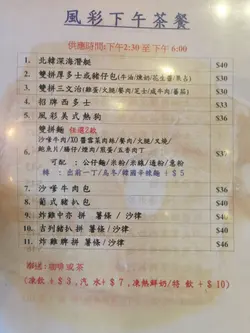 風彩下午茶餐
供應時間:下午2:30 至下午 6:00
1. 北韓深海潛艇 $40
2. 雙拼厚多士或豬仔包(牛油/煉奶/花生醬/果占) $30
3. 雙拼三文治(雞蛋/火腿/餐肉/芝士/咸牛肉/蕃茄) $35
4. 招牌西多士 $33
5. 風彩美式熱狗 $40
6. 雙拼麵 任選2款
沙嗲牛肉/XO醬雪菜肉絲/餐肉/火腿/叉燒/
鮑魚片/腸仔/煙肉/煎蛋/五香肉丁 $38
可配 : 公仔麵/米粉/米線/通粉/意粉
轉 : 出前一丁/烏冬/韓國辛辣麵 + $ 5
7. 沙嗲牛肉包 $36
8. 葡式豬扒包 $40
9. 炸雞中亦拼 薯條 / 沙律
10. 吉列豬扒拼 薯條 / 沙律
11. 炸雞脾拼 薯條 / 沙律 $46
瞓送: 咖啡 或 茶
(凍飲 + $ 3、汽 水 + $ 7、凍熱鮮奶/特 飲 + $ 10)